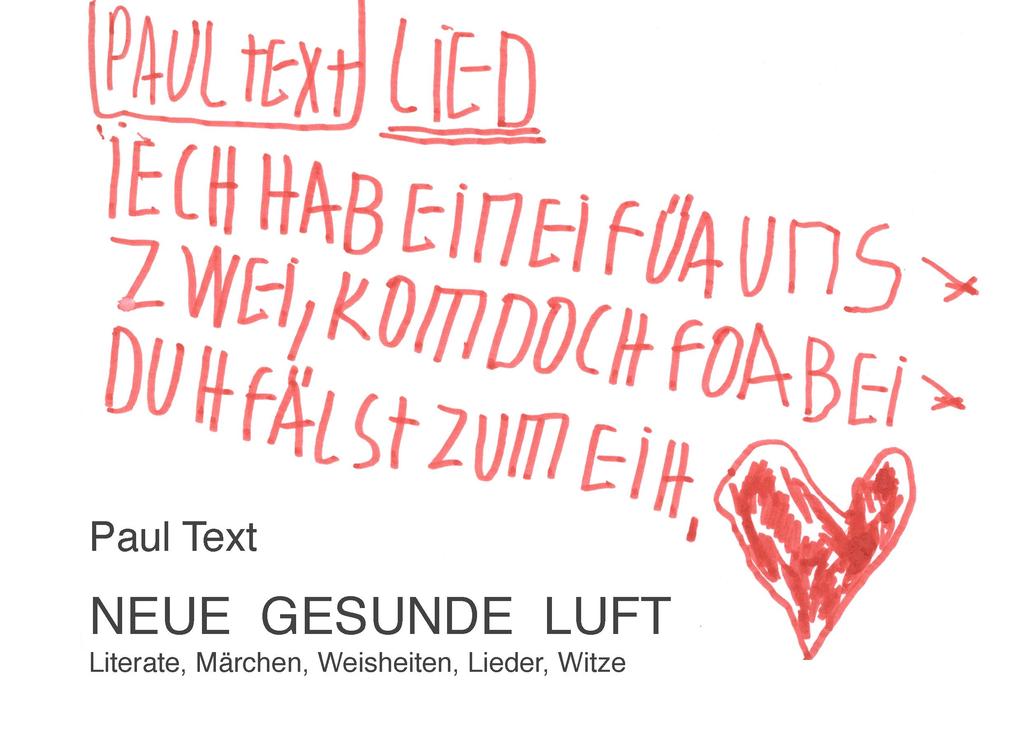 PAUL tEXt LiED
iECH HAB EiNEi FÜA UNS
ZWEi, KOMDOCH FOABEi
DUH FÄLSt ZUM EiH,
Paul Text
NEUE GESUNDE LUFT
Literate, Märchen, Weisheiten, Lieder, Witze